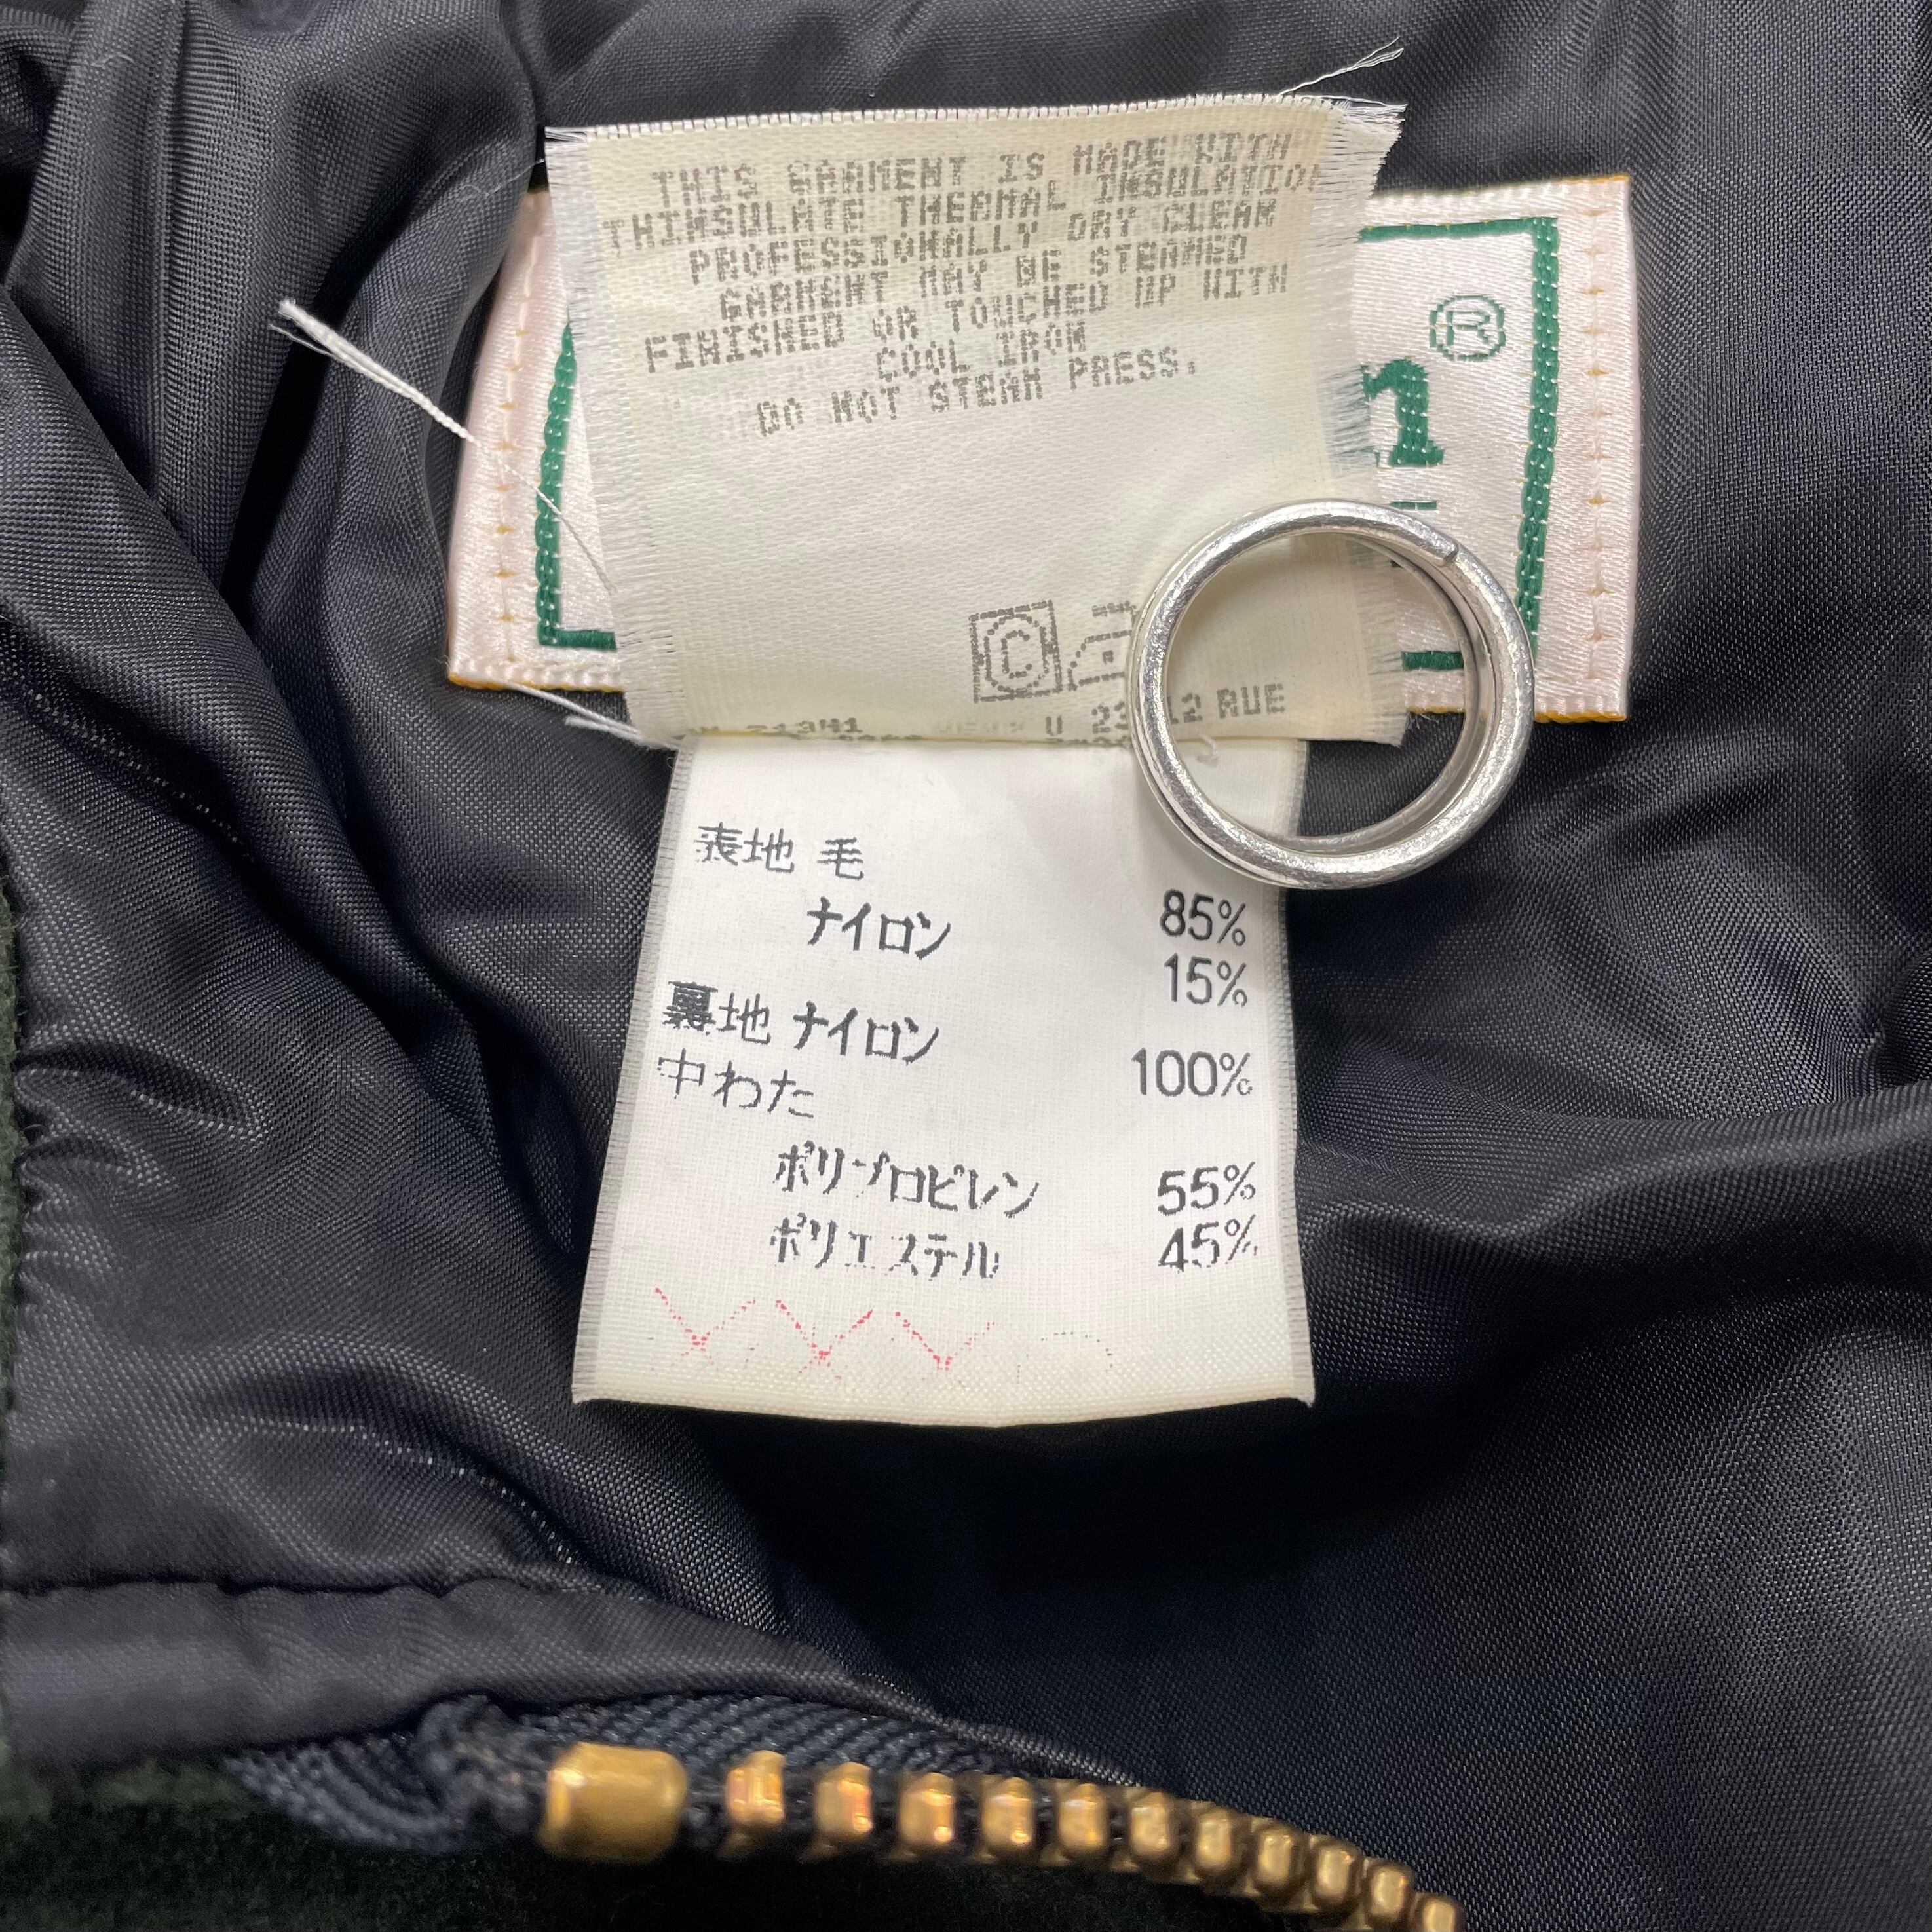 THIS GARMENT IS MADE WITH
THINSULATE THERMAL INSULATION
PROFESSIONALLY DRY CLEAN
GARMENT MAY BE STEAMED
FINISHED OR TOUCHED UP WITH
COOL IRON
DO NOT STEAM PRESS.
n ®
C
213M1
RUE
表地 毛 85%
ナイロン 15%
裏地 ナイロン 100%
中わた
ポリプロピレン 55%
ポリエステル 45%